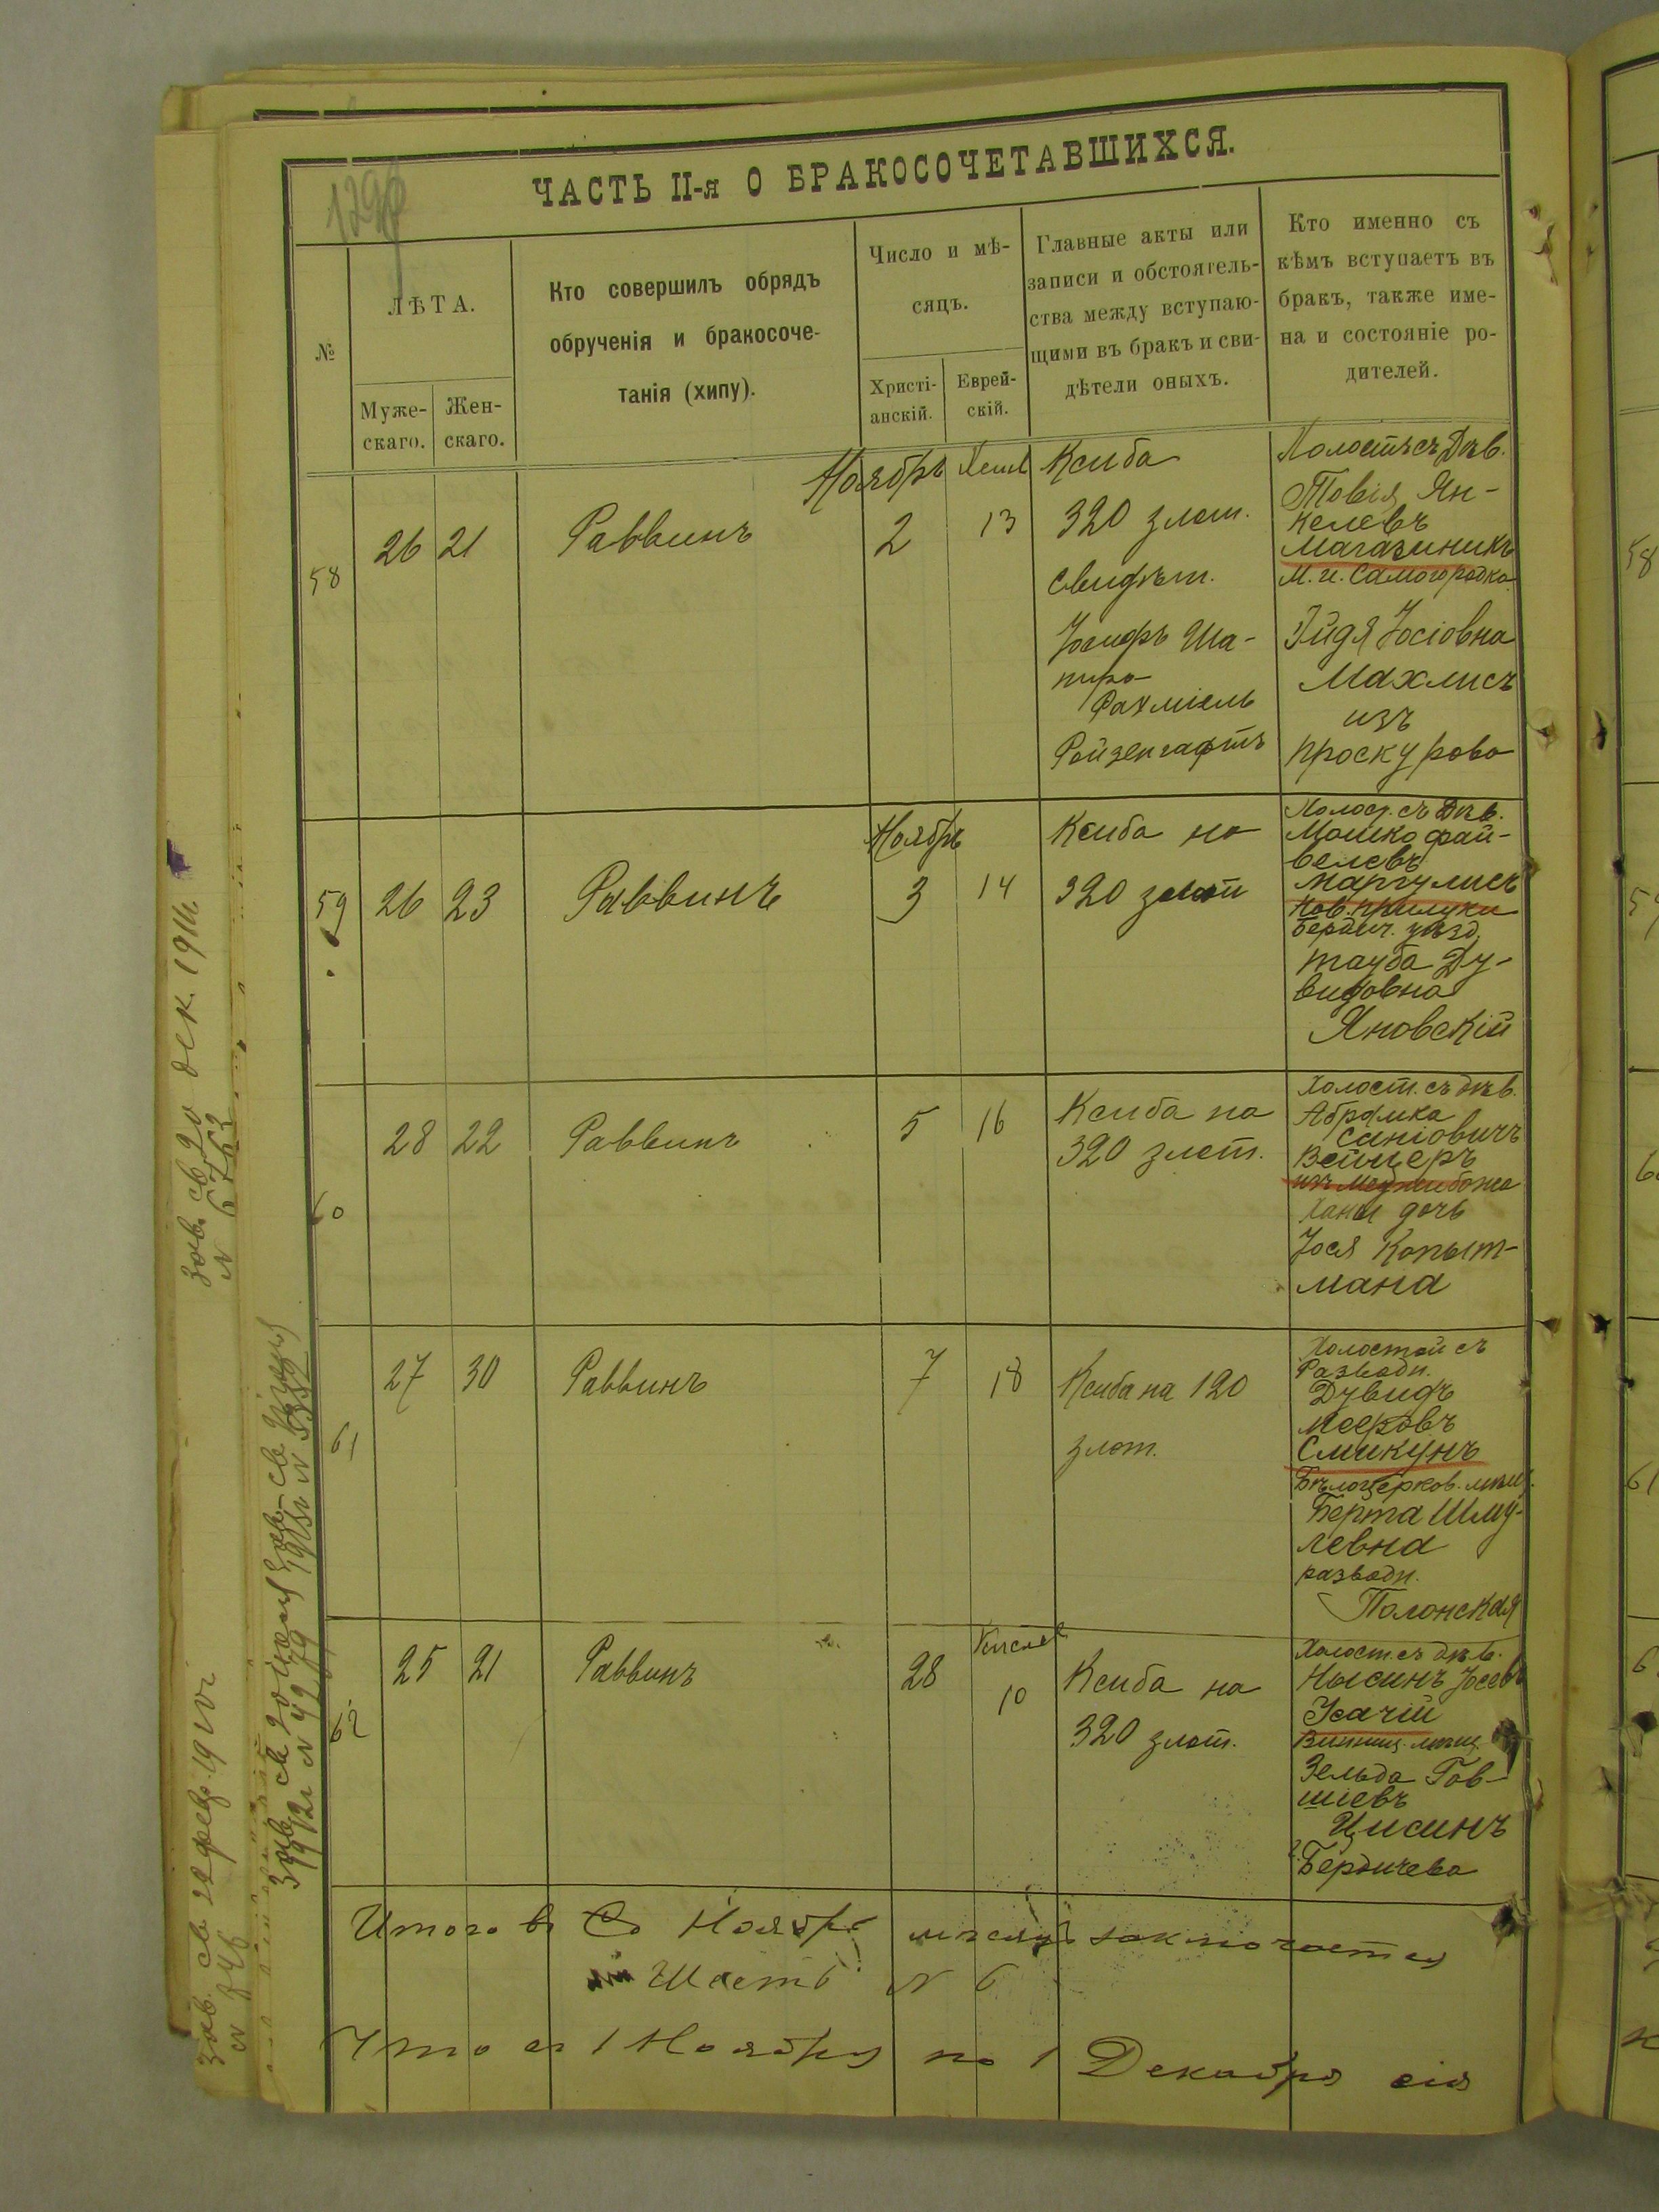 ЧАСТЬ II-я О БРАКОСОЧЕТАВШИХСЯ.
№
ЛѢТА.
Муже-
скаго.
Жен-
скаго.
Кто совершилъ обрядъ
обрученія и бракосоче-
танія (хипу).
Число и мѣ-
сяцъ.
Христі-
анскій.
Еврей-
скій.
Главные акты или
записи и обстоятель-
ства между вступаю-
щими въ бракъ и сви-
дѣтели оныхъ.
Кто именно съ
кѣмъ вступаетъ въ
бракъ, также име-
на и состояніе ро-
дителей.
58
26 21
Раввинъ
Ноябрь
2
13
Ксиба
320 злот.
Свидѣт.
Іосифъ Ша-
пиро
Рахміель
Ройзенгафтъ
Холостъ съ Дѣв.
Товія Ян-
келевъ
Магазиникъ
М. и. Самогородка
Эйдя Іосіовна
Махлисъ
изъ
Проскурова
59
26 23
Раввинъ
Ноябрь
3
14
Ксиба на
320 злот
Холост. съ Дѣв.
Мошко Фай-
велевъ
Маргулисъ
Нов. Прилуки
Бердич. уѣзд.
Тауба Ду-
видовна
Яновскій
60
28 22
Раввинъ
5
16
Ксиба на
320 злот.
Холост. съ дѣв.
Абрамка
Саніовичъ
Вейцеръ
изъ Меджибожа
Хана дочь
Іося Копыт-
мана
61
27 30
Раввинъ
7
18
Ксиба на 120
злот.
Холостой съ
Разводн.
Дувидъ
Мееровъ
Смикунъ
Бѣлоцерков. мѣщ.
Берта Шму-
левна
разводн.
Полонская
62
25 21
Раввинъ
28
Кислев
10
Ксиба на
320 злот.
Холост. съ дѣв.
Нысинъ Іосевъ
Усачій
Винниц. мѣщ.
Зельда Гов-
шіевъ
Цисинъ
Бердичева
Итого въ Ноябрѣ мѣсяцѣ заключается
Шесть N 6
Что съ 1 Ноября по 1 Декабря сія